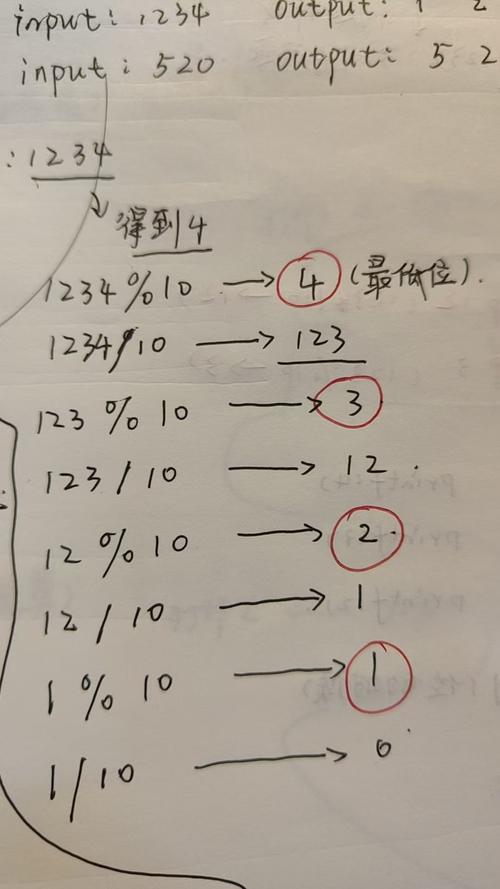 input: 1234 output: 1 2
input: 520 output: 5 2
: 1234
得到4
1234 % 10 → 4 (最低位).
1234/10 → 123
123 % 10 → 3
123 / 10 → 12.
12 % 10 → 2
12 / 10 → 1
1 % 10 → 1
1/10 → 0